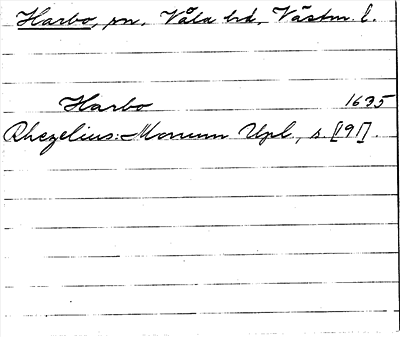 Harbo, sn. Våla hd. Västm. l.
Harbo 1635
Rhezelius: Monum Upl, s. [191].